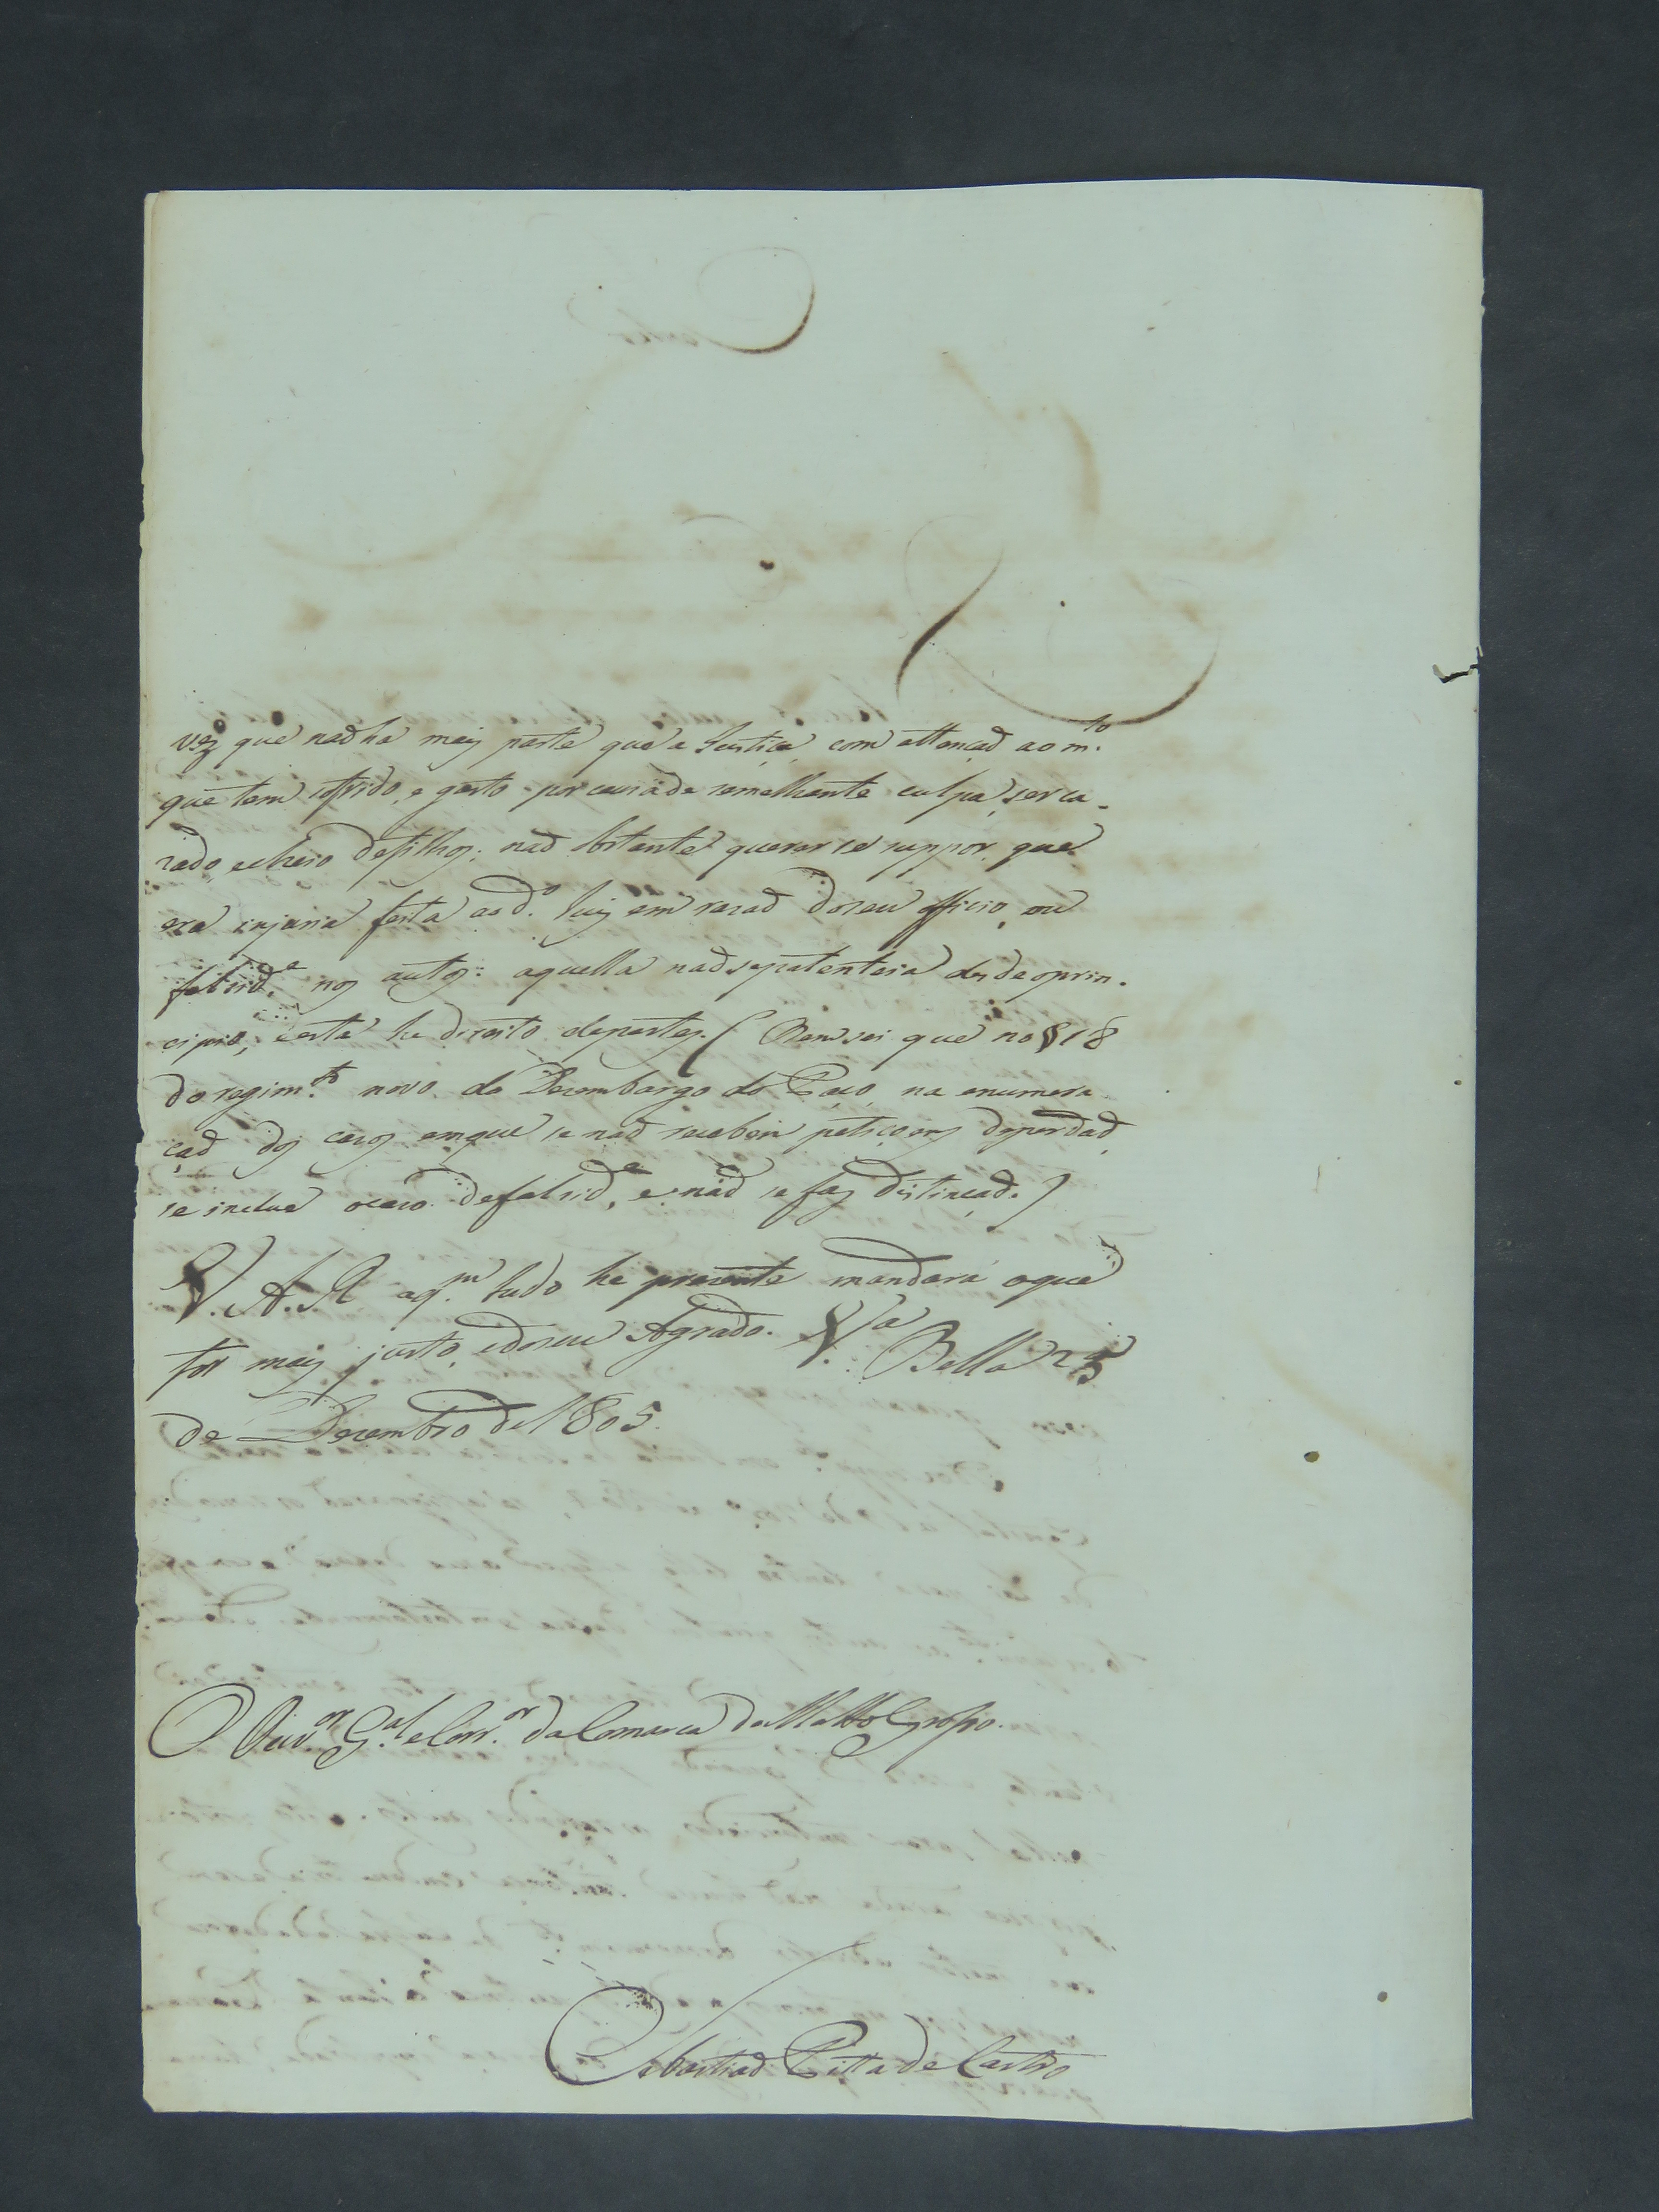 vez que naõ ha mais parte que a Justiça, com attençaõ ao m.to
que tem sofrido, e gasto por cauza de semelhante culpa, ser ca-
zado, e cheio de filhos; naõ obstante querer se suppor, que
era injuria feita ao d.o Juiz em razaõ do seu officio, ou
falsid.e nos autos: aquella naõ se patenteia desde o prin-
cipio; e esta he direito de partes. (Bem sei que no § 18
do regim.to novo do Dezembargo do Paço, na enumera-
çaõ dos cazos em que se naõ recebem petiçoens de perdaõ,
se inclue o cazo de falsid.e, e naõ se faz distincçaõ.)
V. A. R. a q.m tudo he prezente mandará o que
for mais justo, e do seu Agrado. V.a Bella 25
de Dezembro de 1805.
O Ouv.or G.al e Corr.or da Comarca de Matto Grosso.
Sebastiaõ Pitta de Castro